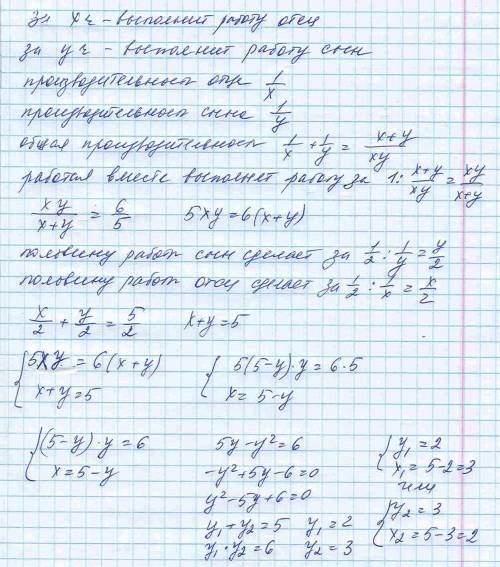 за x ч - выполнит работу отец
за y ч - выполнит работу сын
производительность отца 1/x
производительность сына 1/y
общая производительность 1/x + 1/y = x+y/xy
работая вместе выполнят работу за 1: x+y/xy = xy/x+y
xy/x+y = 6/5 5xy = 6(x+y)
половину работы сын сделает за 1/2 : 1/y = y/2
половину работы отец сделает за 1/2 : 1/x = x/2
x/2 + y/2 = 5/2 x+y=5
{5xy = 6(x+y) {5(5-y)·y = 6·5
x+y=5 x = 5-y
{(5-y)·y = 6 5y-y²=6 {y₁ = 2
x = 5-y -y²+5y-6=0 x₁ = 5-2=3
y²-5y+6=0 или
y₁+y₂=5 y₁=2 {y₂ = 3
y₁·y₂=6 y₂=3 x₂ = 5-3=2